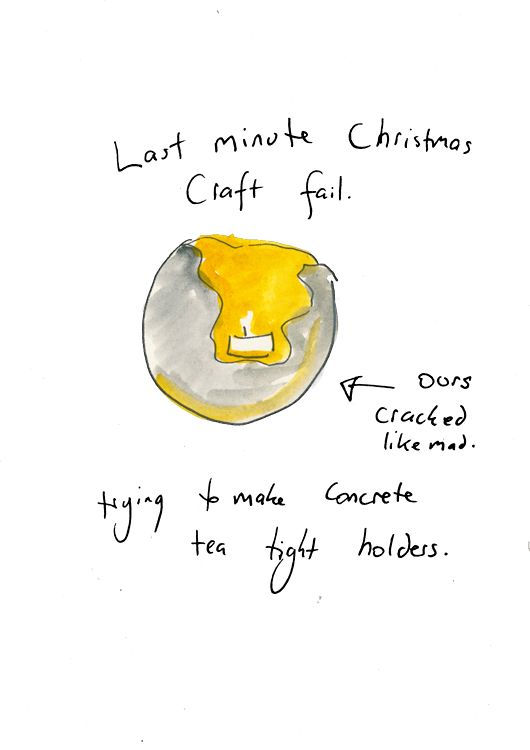 Last minute Christmas
Craft fail.
ours
cracked
like mad.
trying to make Concrete
tea tight holders.